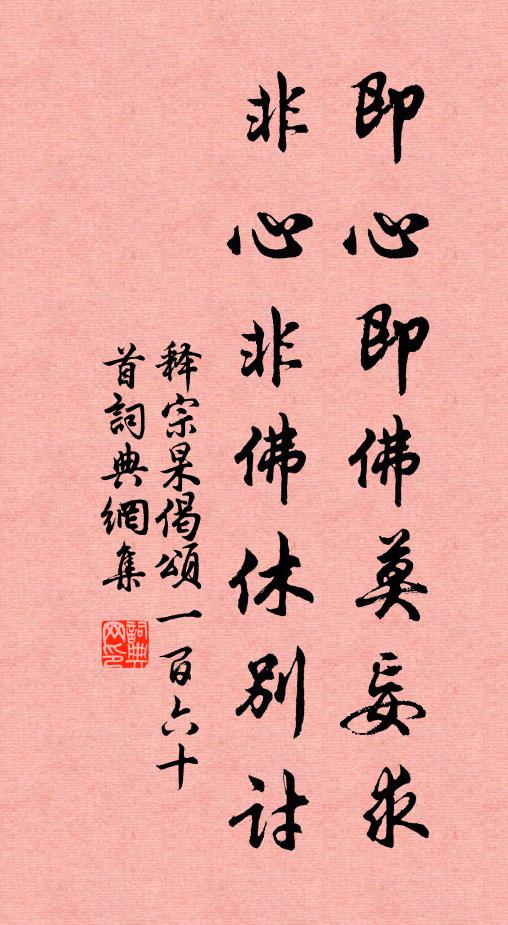 即心即佛莫妄求
非心非佛休别討
释宗杲偈頌一百六十
首詞典網集
詞典网印